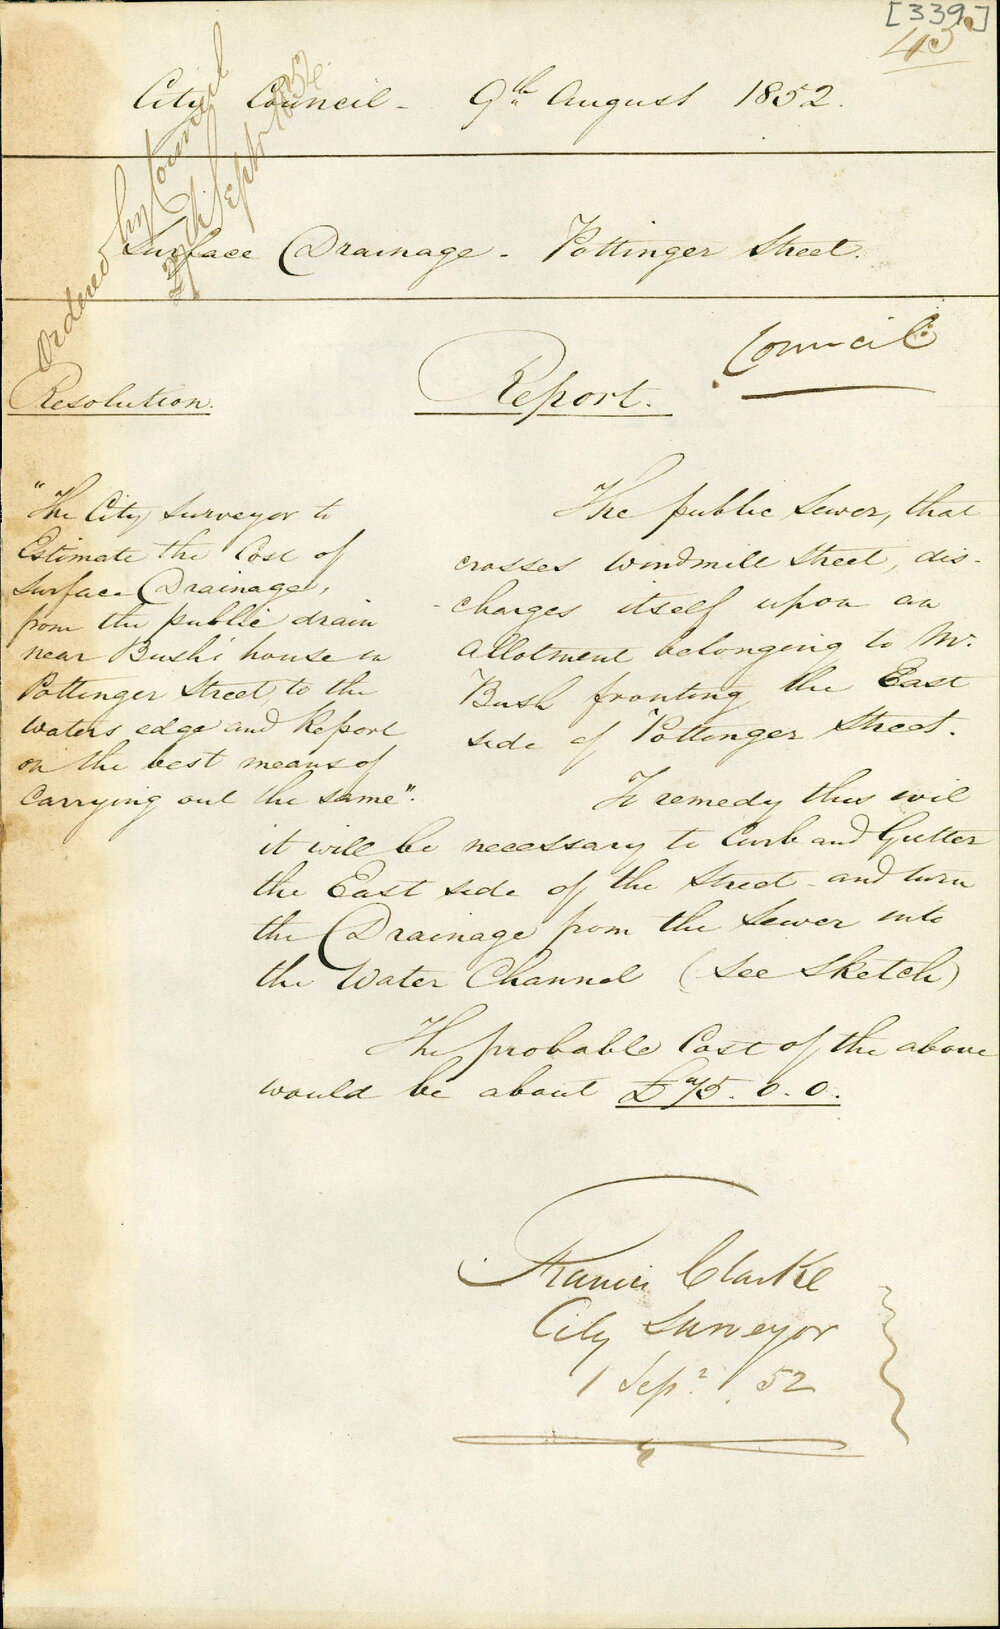 [339]
43
City Council - 9th August 1852.
Ordered by Council
Septr 1852
Surface Drainage - Pottinger Street.
Council
Resolution.
"The City Surveyor to
Estimate the Cost of
Surface Drainage,
from the public drain
near Bush's house in
Pottinger Street, to the
waters edge and Report
on the best means of
Carrying out the same".
Report.
The public Sewer, that
crosses Windmill Street, dis-
-charges itself upon an
allotment belonging to Mr.
Bush fronting the East
side of Pottinger Street.
To remedy this evil
it will be necessary to Curb and Gutter
the East side of the Street - and turn
the Drainage from the Sewer into
the Water Channel (See Sketch)
The probable Cost of the above
would be about £75. 0. 0.
Francis Clarke
City Surveyor
1 Sepr. 52